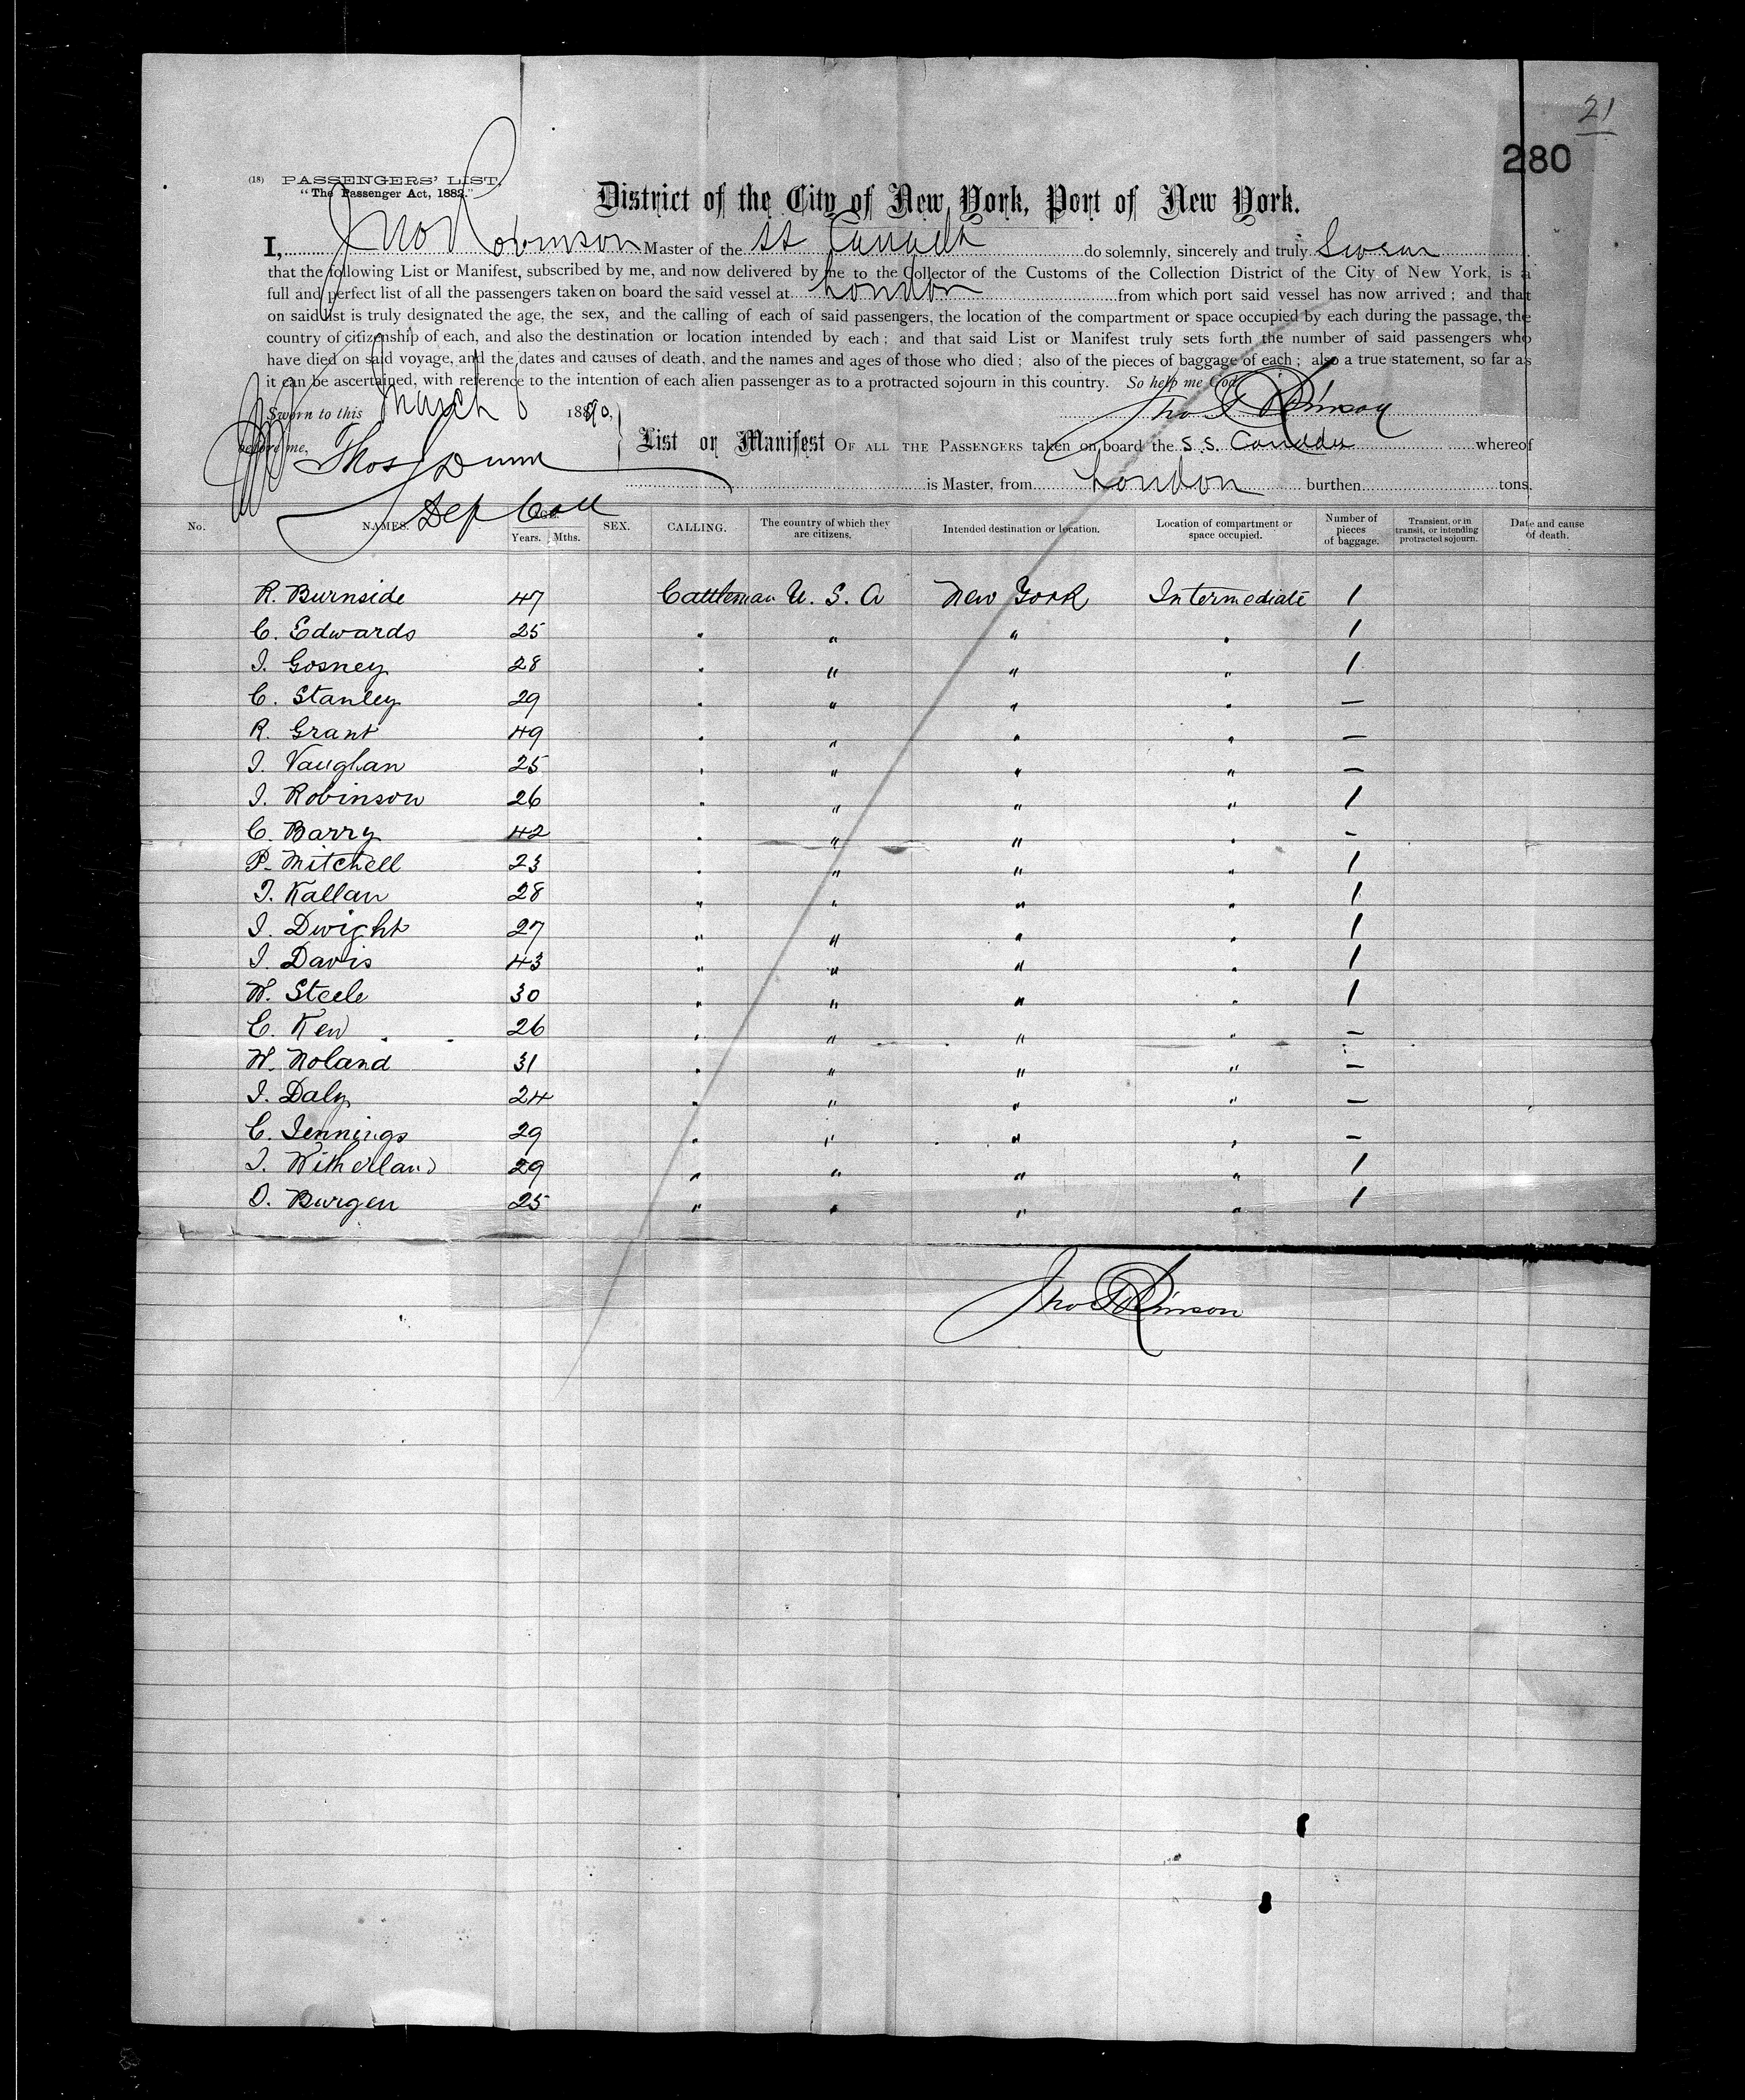 21
280
(18) PASSENGERS' LIST.
"The Passenger Act, 1882."
District of the City of New York, Port of New York.
I, Jno Robinson Master of the SS Canada do solemnly, sincerely and truly Swear
that the following List or Manifest, subscribed by me, and now delivered by me to the Collector of the Customs of the Collection District of the City of New York, is a
full and perfect list of all the passengers taken on board the said vessel at London from which port said vessel has now arrived; and that
on said list is truly designated the age, the sex, and the calling of each of said passengers, the location of the compartment or space occupied by each during the passage, the
country of citizenship of each, and also the destination or location intended by each; and that said List or Manifest truly sets forth the number of said passengers who
have died on said voyage, and the dates and causes of death, and the names and ages of those who died; also of the pieces of baggage of each; also a true statement, so far as
it can be ascertained, with reference to the intention of each alien passenger as to a protracted sojourn in this country. So help me God
Sworn to this March 6 1890, Jno Robinson
before me, Thos Dunn List or Manifest OF ALL THE PASSENGERS taken on board the S.S. Canada whereof
is Master, from London burthen tons.
Dep Coll
No. NAMES. AGE. Years. Mths. SEX. CALLING. The country of which they are citizens. Intended destination or location. Location of compartment or space occupied. Number of pieces of baggage. Transient, or in transit, or intending protracted sojourn. Date and cause of death.
R. Burnside 47 Cattleman U. S. A New York Intermediate 1
C. Edwards 25 " " " " 1
I. Gosney 28 " " " " 1
C. Stanley 29 " " " " —
R. Grant 49 " " " " —
I. Vaughan 25 " " " " —
I. Robinson 26 " " " " 1
C. Barry 42 " " " " —
P. Mitchell 23 " " " " 1
T. Kallan 28 " " " " 1
I. Dwight 27 " " " " 1
I. Davis 43 " " " " 1
W. Steele 30 " " " " 1
C. Kew 26 " " " " —
W. Noland 31 " " " " —
I. Daly 24 " " " " —
C. Jennings 29 " " " " —
I. Witherland 29 " " " " 1
D. Burgen 25 " " " " 1
Jno Robinson